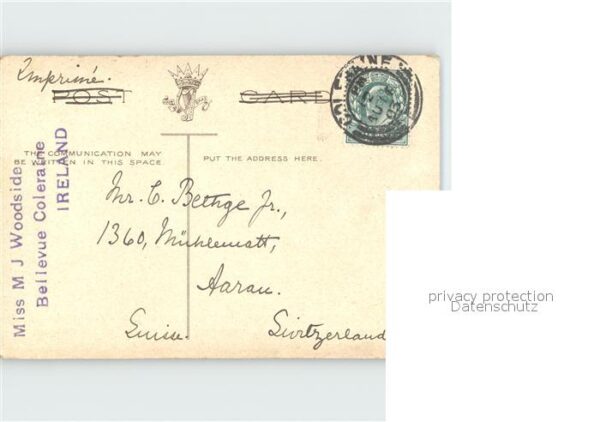 Imprimé.
POST CARD
THE COMMUNICATION MAY
BE WRITTEN IN THIS SPACE
PUT THE ADDRESS HERE.
Miss M J Woodside
Bellevue Coleraine
IRELAND
COLERAINE
Mr. C. Bethge Jr.,
1360, Mühlematt,
Aarau.
Suisse. Switzerland
privacy protection
Datenschutz